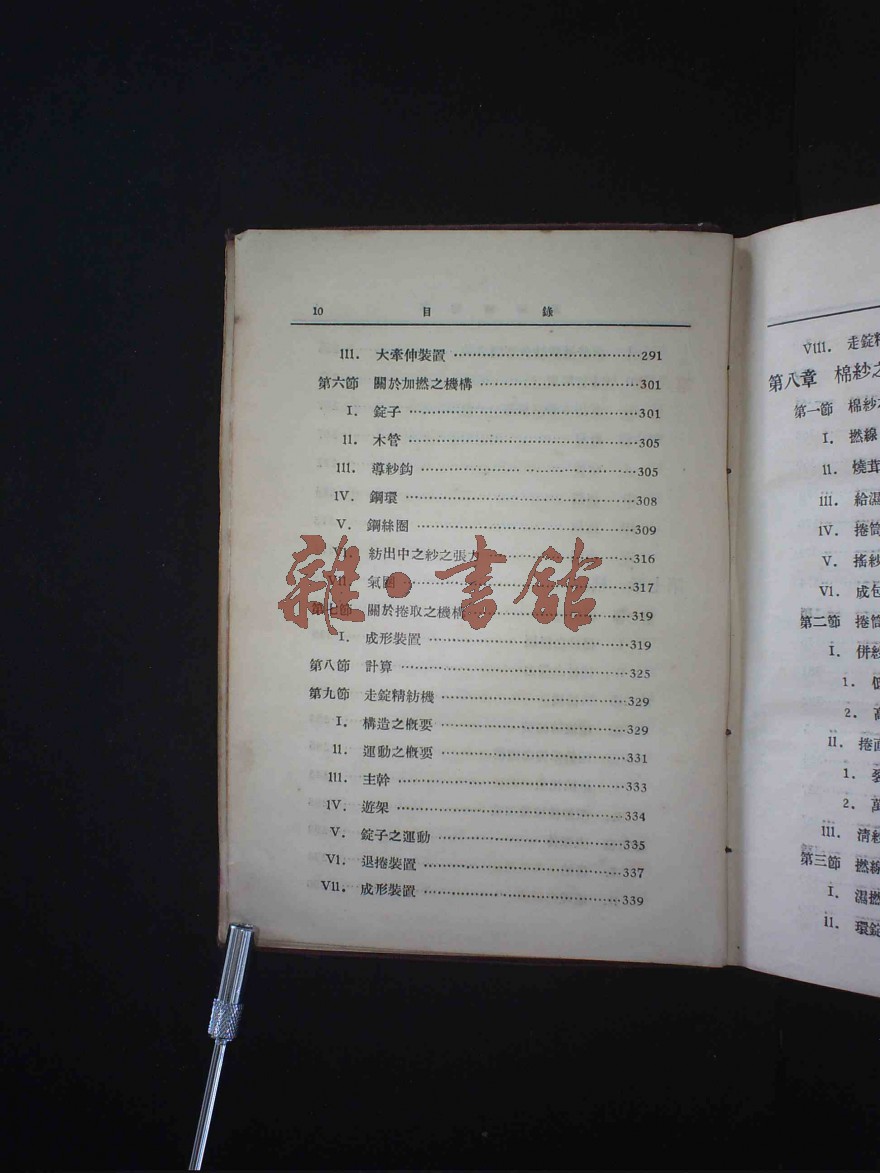 10 目 錄
III. 大牽伸裝置 291
第六節 關於加撚之機構 301
I. 錠子 301
II. 木管 305
III. 導紗鈎 305
IV. 鋼環 308
V. 鋼絲圈 309
VI. 紡出中之紗之張力 316
VII. 氣圈 317
第七節 關於捲取之機構 319
I. 成形裝置 319
第八節 計算 325
第九節 走錠精紡機 329
I. 構造之概要 329
II. 運動之概要 331
III. 主幹 333
IV. 遊架 334
V. 錠子之運動 335
VI. 退捲裝置 337
VII. 成形裝置 339
雜·書館
VIII. 走錠
第八章 棉紗之
第一節 棉紗
I. 撚線
II. 燒茸
III. 給濕
IV. 捲筒
V. 搖紗
VI. 成包
第二節 捲筒
I. 併紗
1.
2.
II. 捲
1.
2.
III. 清紗
第三節 撚線
I. 濕撚
II. 環錠